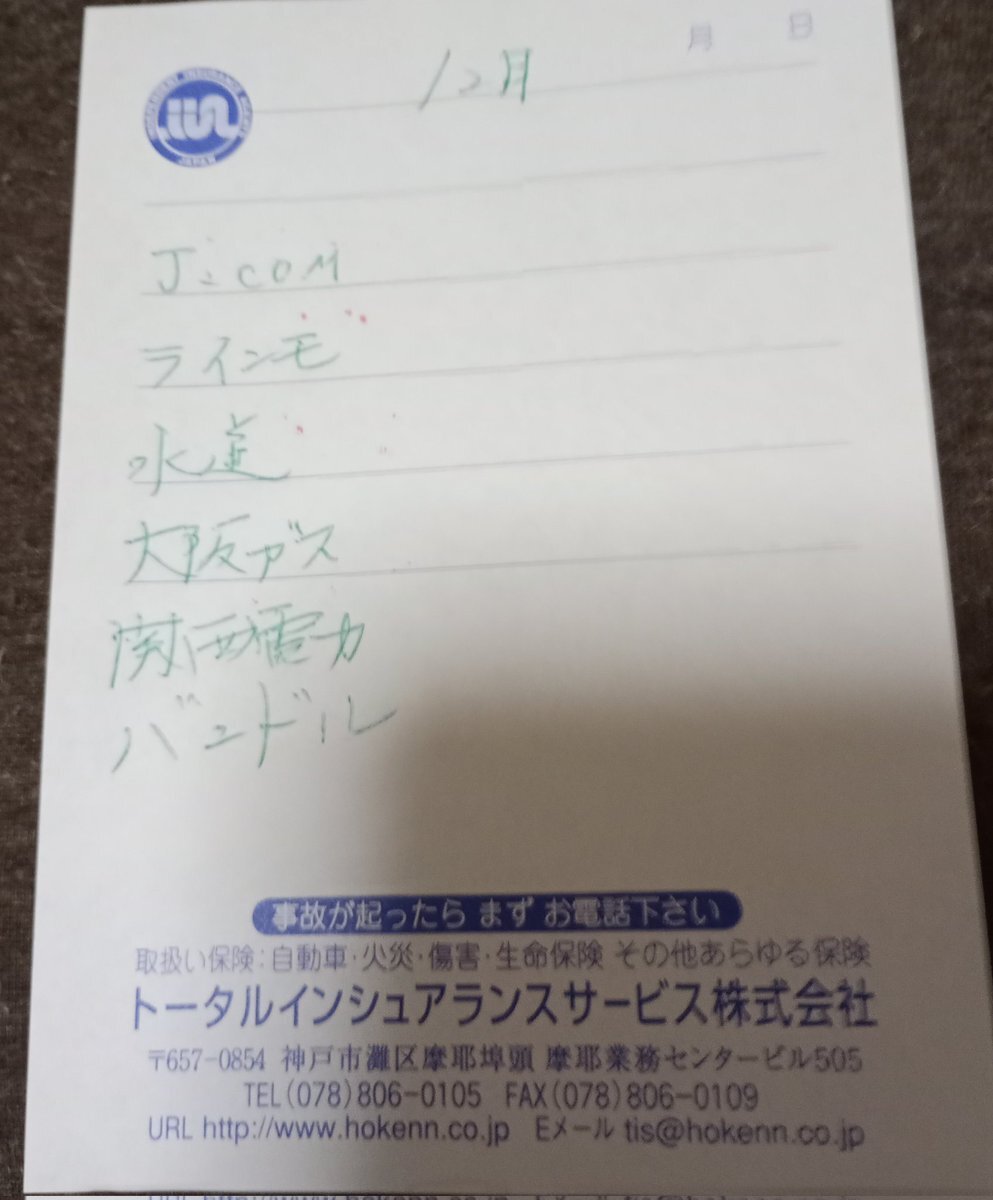 月 日
12月
INDEPENDENT INSURANCE AGENTS
iin
JAPAN
J:COM
ラインモ
水道
大阪ガス
関西電力
バンドル
事故が起ったら まず お電話下さい
取扱い保険:自動車・火災・傷害・生命保険 その他あらゆる保険
トータルインシュアランスサービス株式会社
〒657-0854 神戸市灘区摩耶埠頭 摩耶業務センタービル505
TEL(078)806-0105 FAX(078)806-0109
URL http://www.hokenn.co.jp Eメール tis@hokenn.co.jp